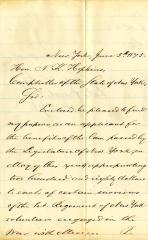 New York, June 5th 1875.
Hon. N. K. Hopkins,
Comptroller of the State of New York,
Sir,
Enclosed be pleased to find
my papers as an applicant for
the benefits of the Law passed by
the Legislature of New York, in
May of this year, appropriating
two hundred and eighty dollars
to each of certain survivors
of the 1st Regiment of New York
volunteers engaged in the
War with Mexico.